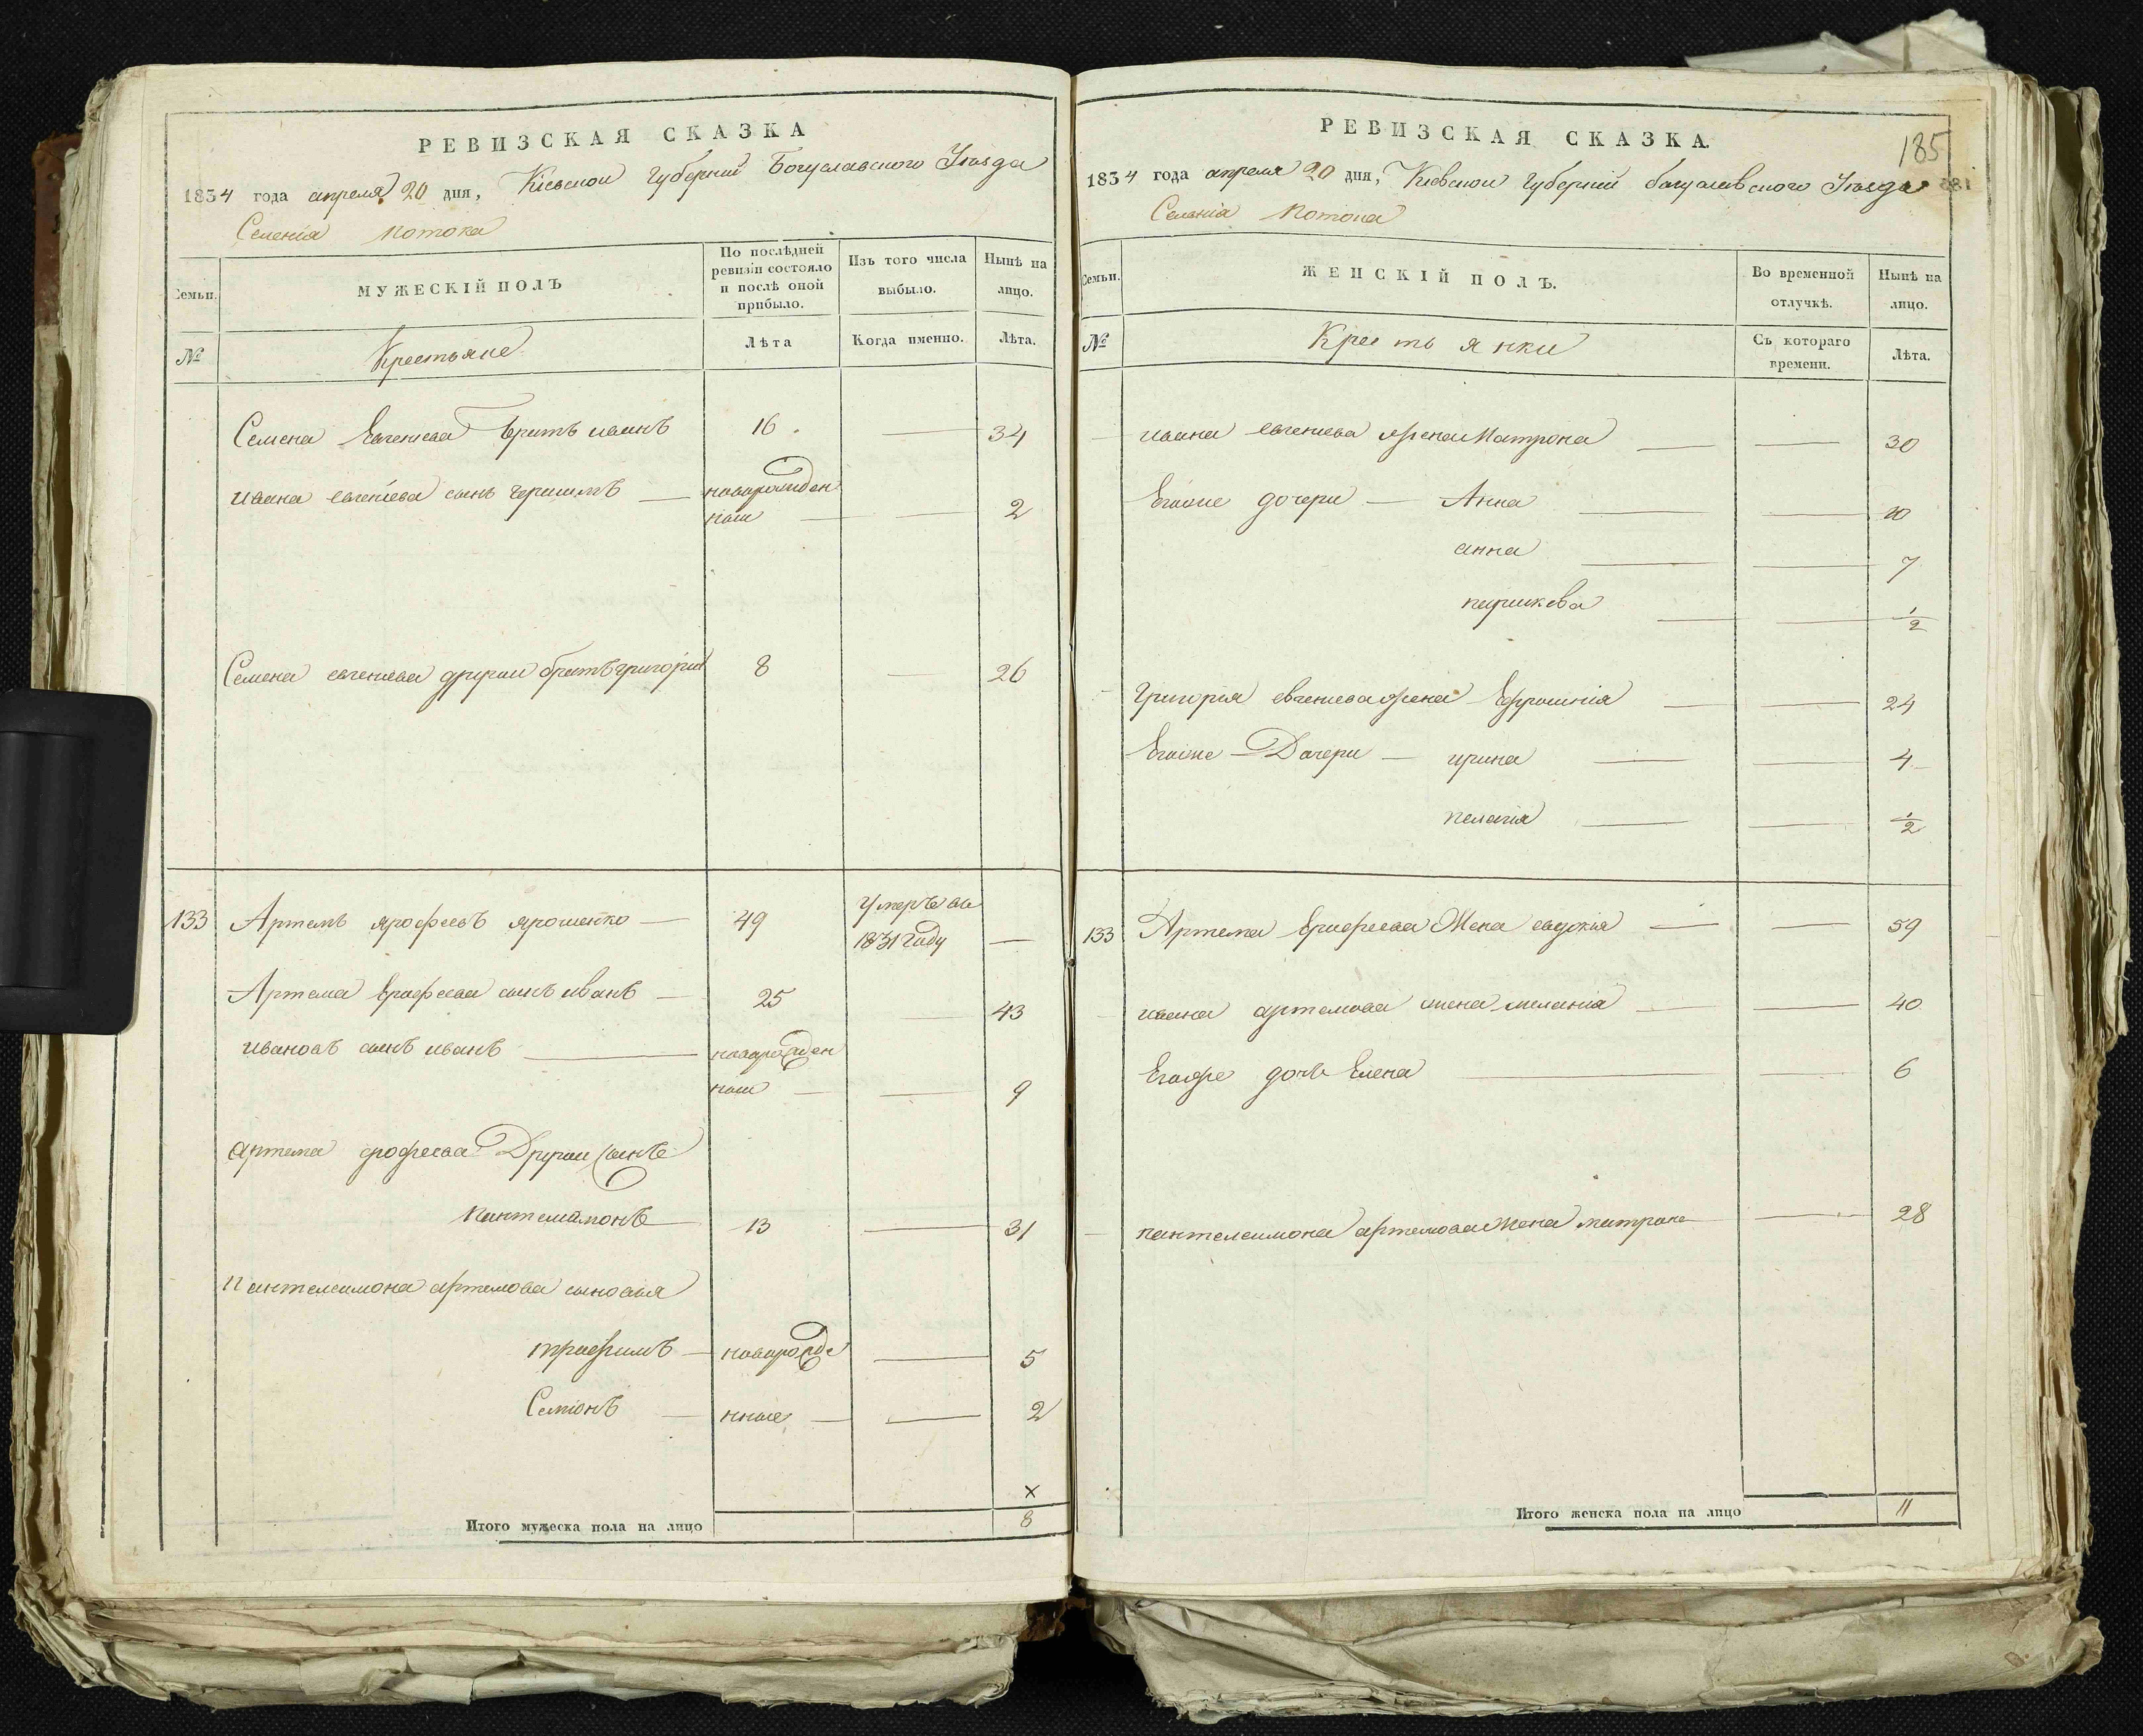 РЕВИЗСКАЯ СКАЗКА
1834 года апреля 20 дня, Кіевской губерніи Богуславского Уѣзда
Селенія Потока
Семьи.
МУЖЕСКІЙ ПОЛЪ
По послѣдней ревизіи состояло и послѣ оной прибыло.
Изъ того числа выбыло.
Нынѣ на лицо.
№
Крестьяне
Лѣта
Когда именно.
Лѣта.
Семена Евгениева братъ иванъ 16. — 34
ивана евгеніева сынъ — новорожден
ной — — 2
Семена евгениева другои братъ григории 8 — 26
133 Артемъ ярофеевъ ярошенко — 49 умерѣ въ
1831 году —
Артема Ерофеева сынъ иванъ — 25 — 43
ивановъ сынъ иванъ — новорожден
ной — — 9
артема ерофеева Другои сынъ
Пантелимонъ 13 — 31
Пантелеимона артемова сыновья
трофимъ — новорожде — 5
Семіонъ — нные — — 2
×
Итого мужеска пола на лицо 8
РЕВИЗСКАЯ СКАЗКА.
185
1834 года апреля 20 дня, Кіевской губерніи богуславского Уѣзда
Селенія Потока
Семьи.
ЖЕНСКІЙ ПОЛЪ.
Во временной отлучкѣ.
Нынѣ на лицо.
№
Крестьянки
Съ котораго времени.
Лѣта.
ивана евгениева жена Матрона — — 30
Егоже дочери — Анна — — 10
анна — — 7
парискева — — 1/2
Григорія евгениева жена Ефросинія — — 24
Егоже — Дочери — ирина — — 4
пелагія — — 1/2
133 Артема Ерофеева Жена евдокія — — 59
ивана артемова жена меланія — — 40
Егоже дочь Елена — — 6
пантелеимона артемова жена матрона — 28
Итого женска пола на лицо 11